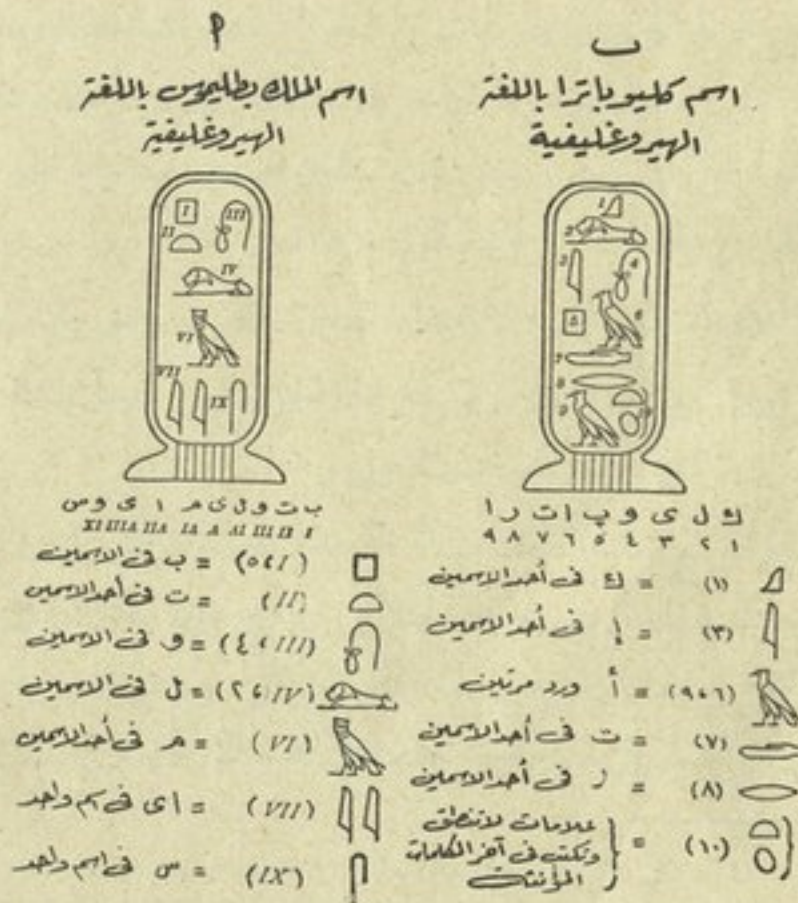 ب
اسم كليوباترا باللغة
الهيروغليفية
1
2
3
4
5
6
7
8
9
ك ل ى و پ ا ت ر ا
١ ٢ ٣ ٤ ٥ ٦ ٧ ٨ ٩
(١) = ك فى أحد الاسمين
(٣) = إ فى أحد الاسمين
(٦،٩) = أ ورد مرتين
(٧) = ت فى أحد الاسمين
(٨) = ر فى أحد الاسمين
(١٠) = علامات لا تنطق
وتكتب فى آخر الكلمات
المؤنثة
أ
اسم الملك بطليموس باللغة
الهيروغليفية
I
II
III
IV
VI
VII
IX
ب ت و ل ى م ا ى و س
(I،٥) = ب فى الاسمين
(II) = ت فى أحد الاسمين
(III،٤) = و فى الاسمين
(IV،٢) = ل فى الاسمين
(VI) = م فى أحد الاسمين
(VII) = اى فى اسم واحد
(IX) = س فى اسم واحد